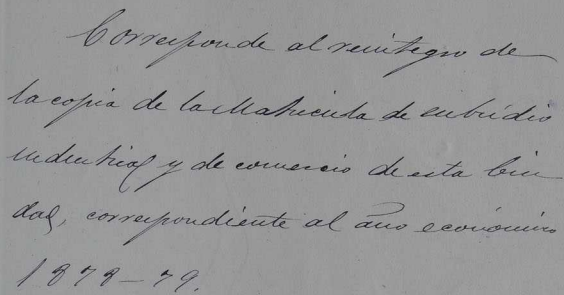 Corresponde al reintegro de
la copia de la Matricula de subsidio
industrial y de comercio de esta Ciu
dad, correspondiente al año económico
1878-79.